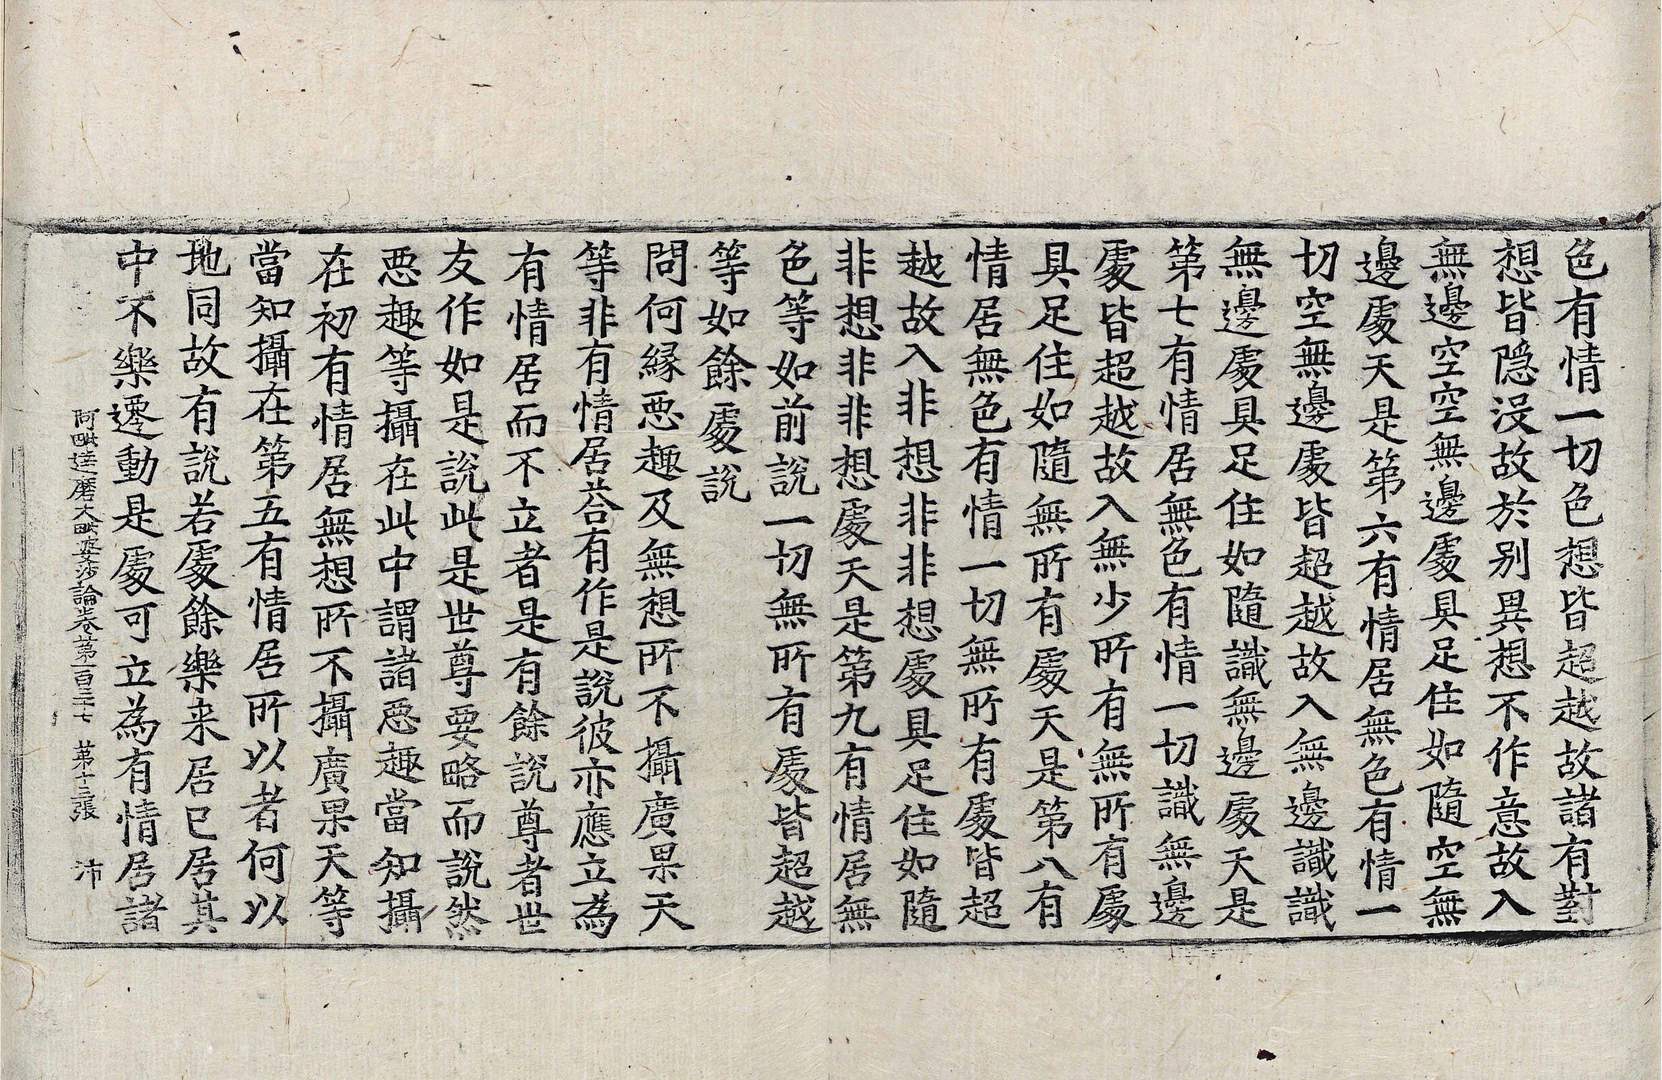 色有情一切色想皆超越故諸有對
想皆隱沒故於別異想不作意故入
無邊空空無邊處具足住如隨空無
邊處天是第六有情居無色有情一
切空無邊處皆超越故入無邊識識
無邊處具足住如隨識無邊處天是
第七有情居無色有情一切識無邊
處皆超越故入無少所有無所有處
具足住如隨無所有處天是第八有
情居無色有情一切無所有處皆超
越故入非想非非想處具足住如隨
非想非非想處天是第九有情居無
色等如前說一切無所有處皆超越
等如餘處說
問何緣惡趣及無想所不攝廣果天
等非有情居荅有作是說彼亦應立為
有情居而不立者是有餘說尊者世
友作如是說此是世尊要略而說然
惡趣等攝在此中謂諸惡趣當知攝
在初有情居無想所不攝廣果天等
當知攝在第五有情居所以者何以
地同故有說若處餘樂来居已居其
中不樂遷動是處可立為有情居諸
阿毗達磨大毗婆沙論卷第一百三十七　第十三張　沛